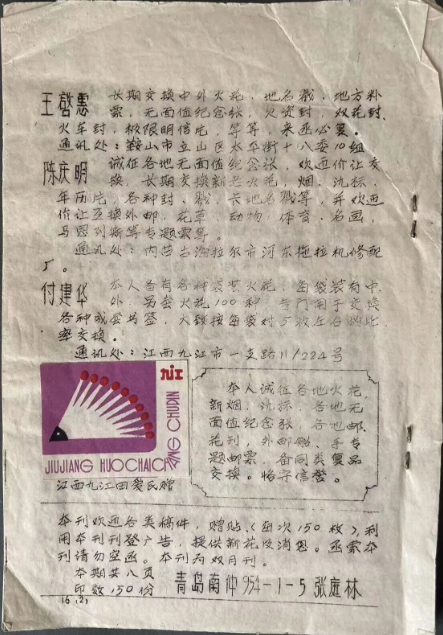 王启惠 长期交换中外火花，地名戳，地方补
票，无面值纪念张，欠资封，双花封，
火车封，极限明信片，等等，来函必复。
通讯处：鞍山市立山区太平街十八委10组
陈庆明 诚征各地无面值纪念张，欢迎价让交
换，长期交换新老火花，烟、沈标，
年历片，各种封、戳，长地名戳等，并欢迎
价让互换外邮，花草，动物，体育，名画，
马恩列斯等专题票等。
通讯处：内蒙古海拉尔市河东拖拉机修配
厂。
付建华 本人备有各种袋装火花，每袋装有中、
外 套火花100种 专门用于交换
各种 书签，大致按每袋对
率交换。
通讯处：江西九江市一支路11/224号
九江
JIUJIANG HUOCHAICHANG CHUPIN
江西九江田 氏赠
本人诚征各地火花，
新烟、沈标，各地无
面值纪念张，各地邮、
花刊，外邮 ，手专
题邮票，备同类复品
交换。恪守信誉。
本刊欢迎各类稿件，赠贴（每次150枚），利
用本刊刊登广告，提供新花及消息。函索本
刊请勿空函。本刊为双月刊。
本期共八页
印数150份 青岛南仲954-1-5 张庭林